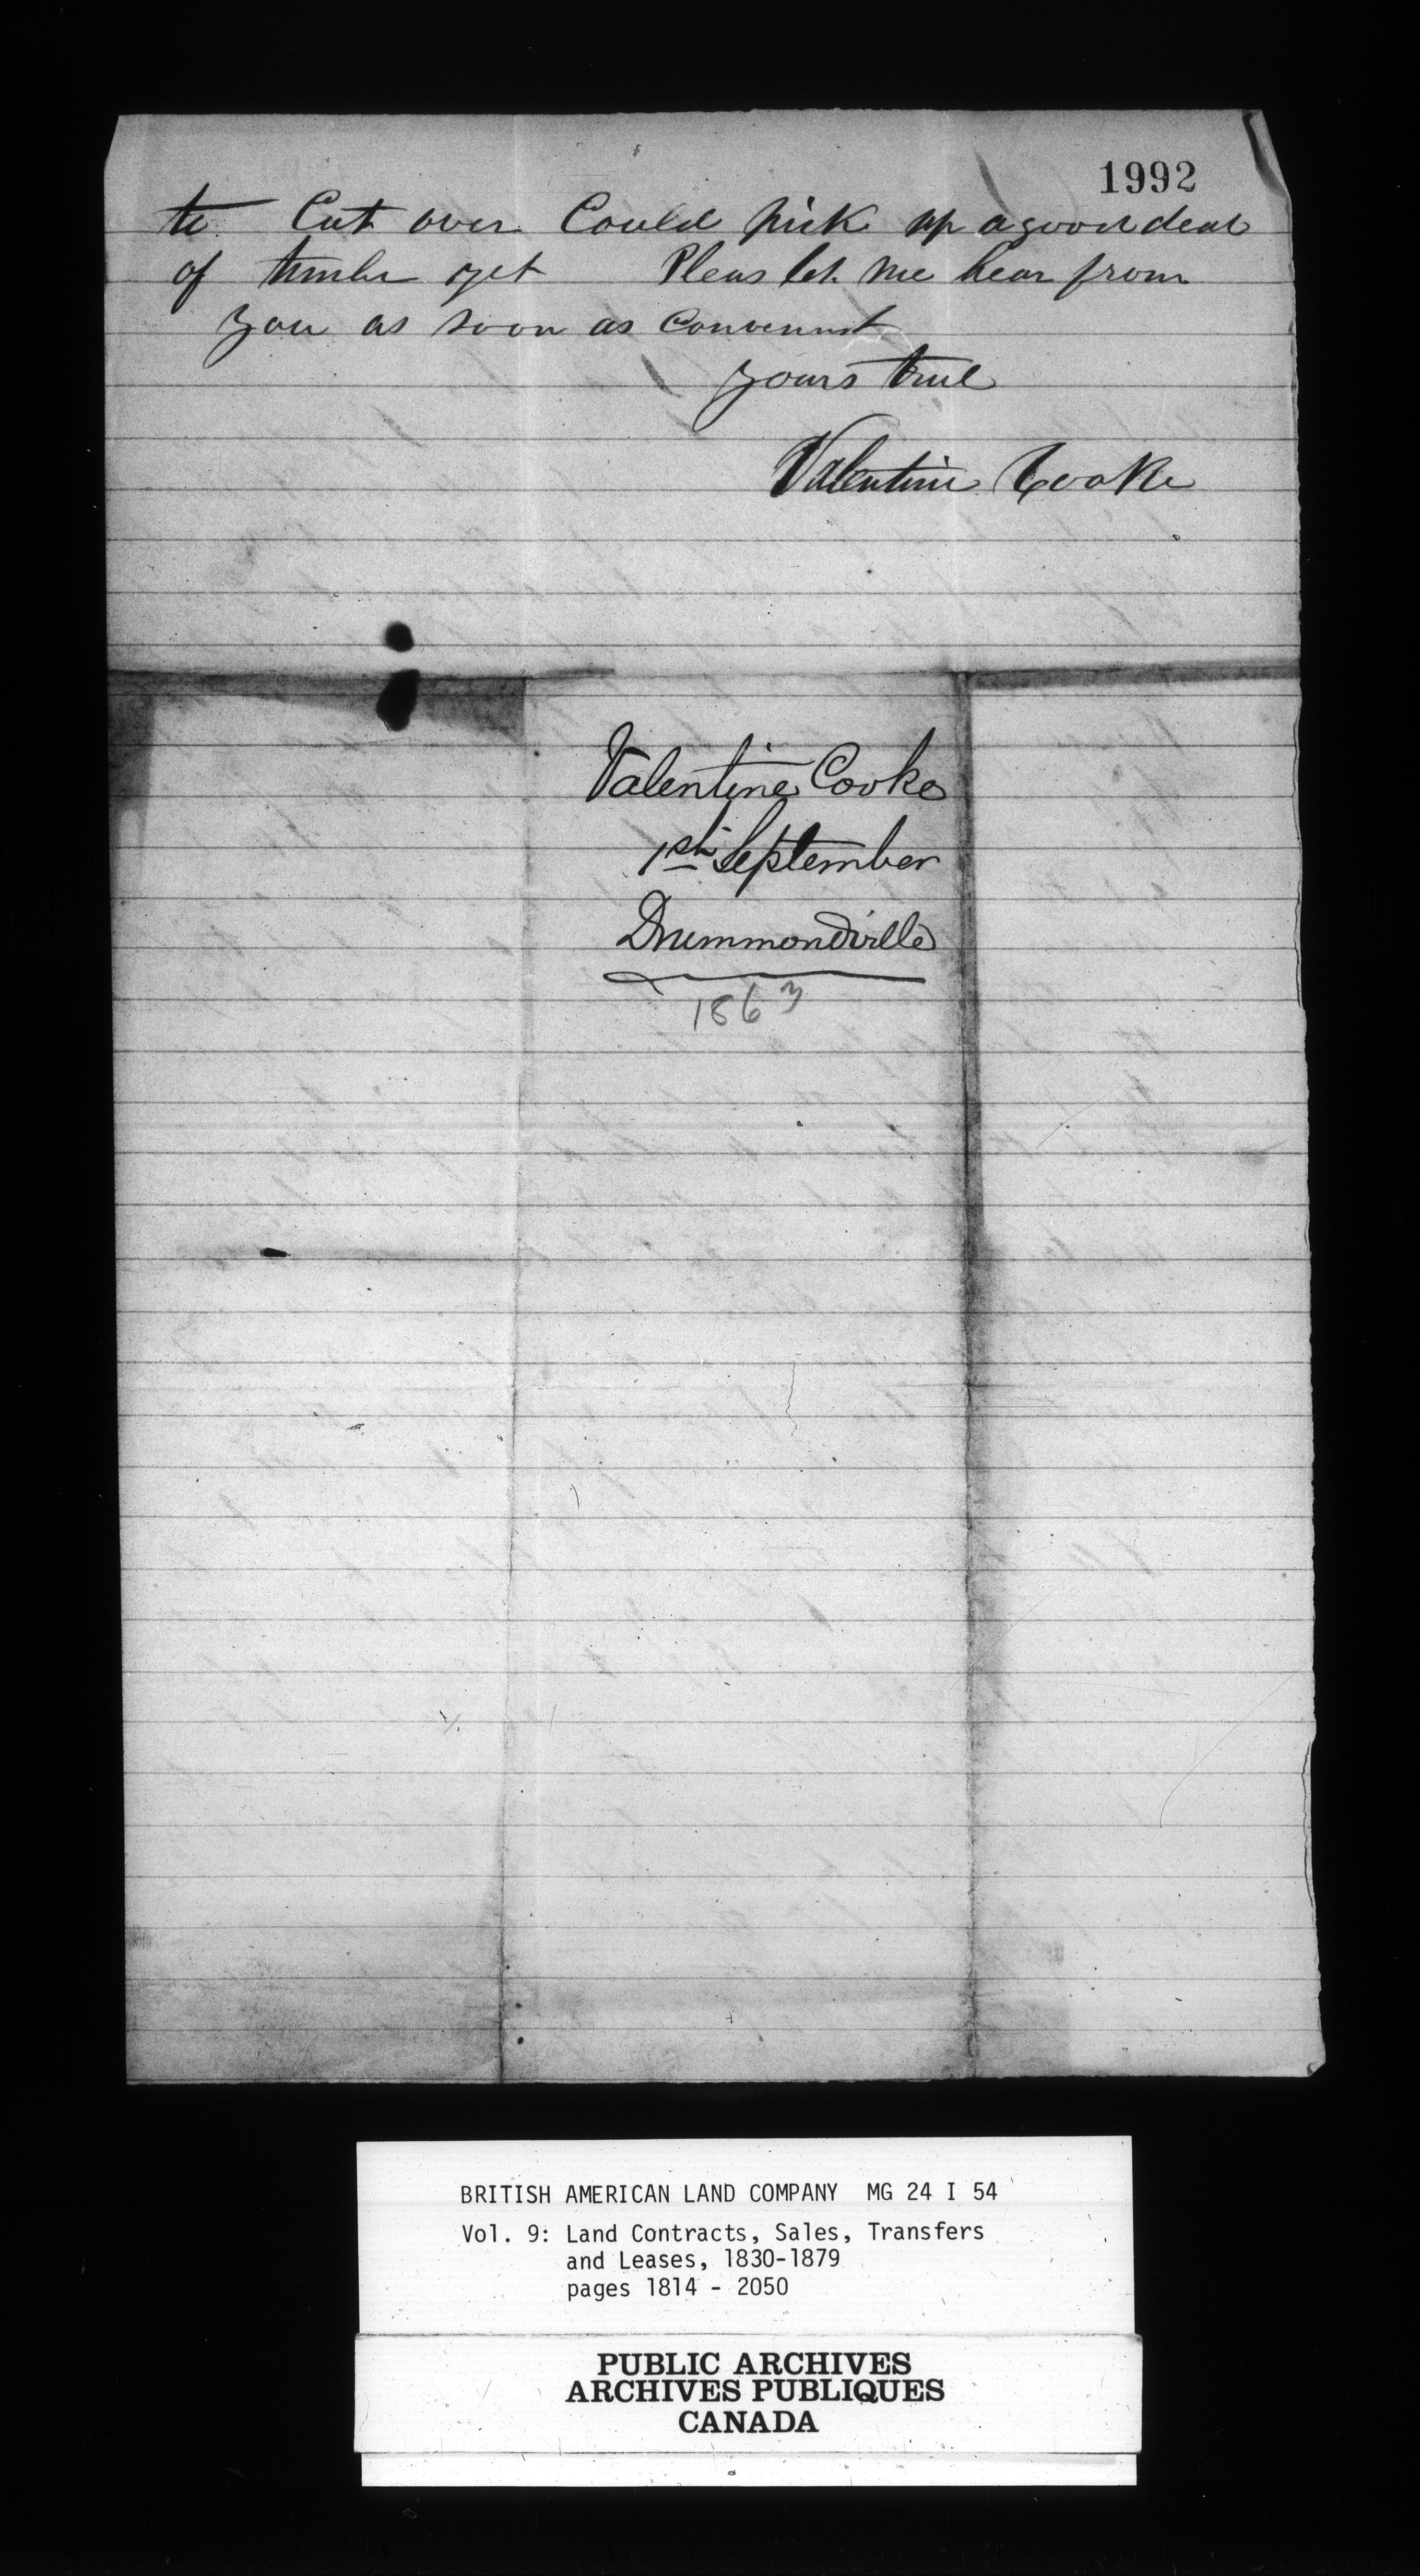 1992
to Cut over Could pick up a good deal
of timber yet Pleas let me hear from
you as soon as convenint
yours true
Valentine Cooke
Valentine Cooke
1st September
Drummondville
1863
BRITISH AMERICAN LAND COMPANY MG 24 I 54
Vol. 9: Land Contracts, Sales, Transfers
and Leases, 1830-1879
pages 1814 - 2050
PUBLIC ARCHIVES
ARCHIVES PUBLIQUES
CANADA